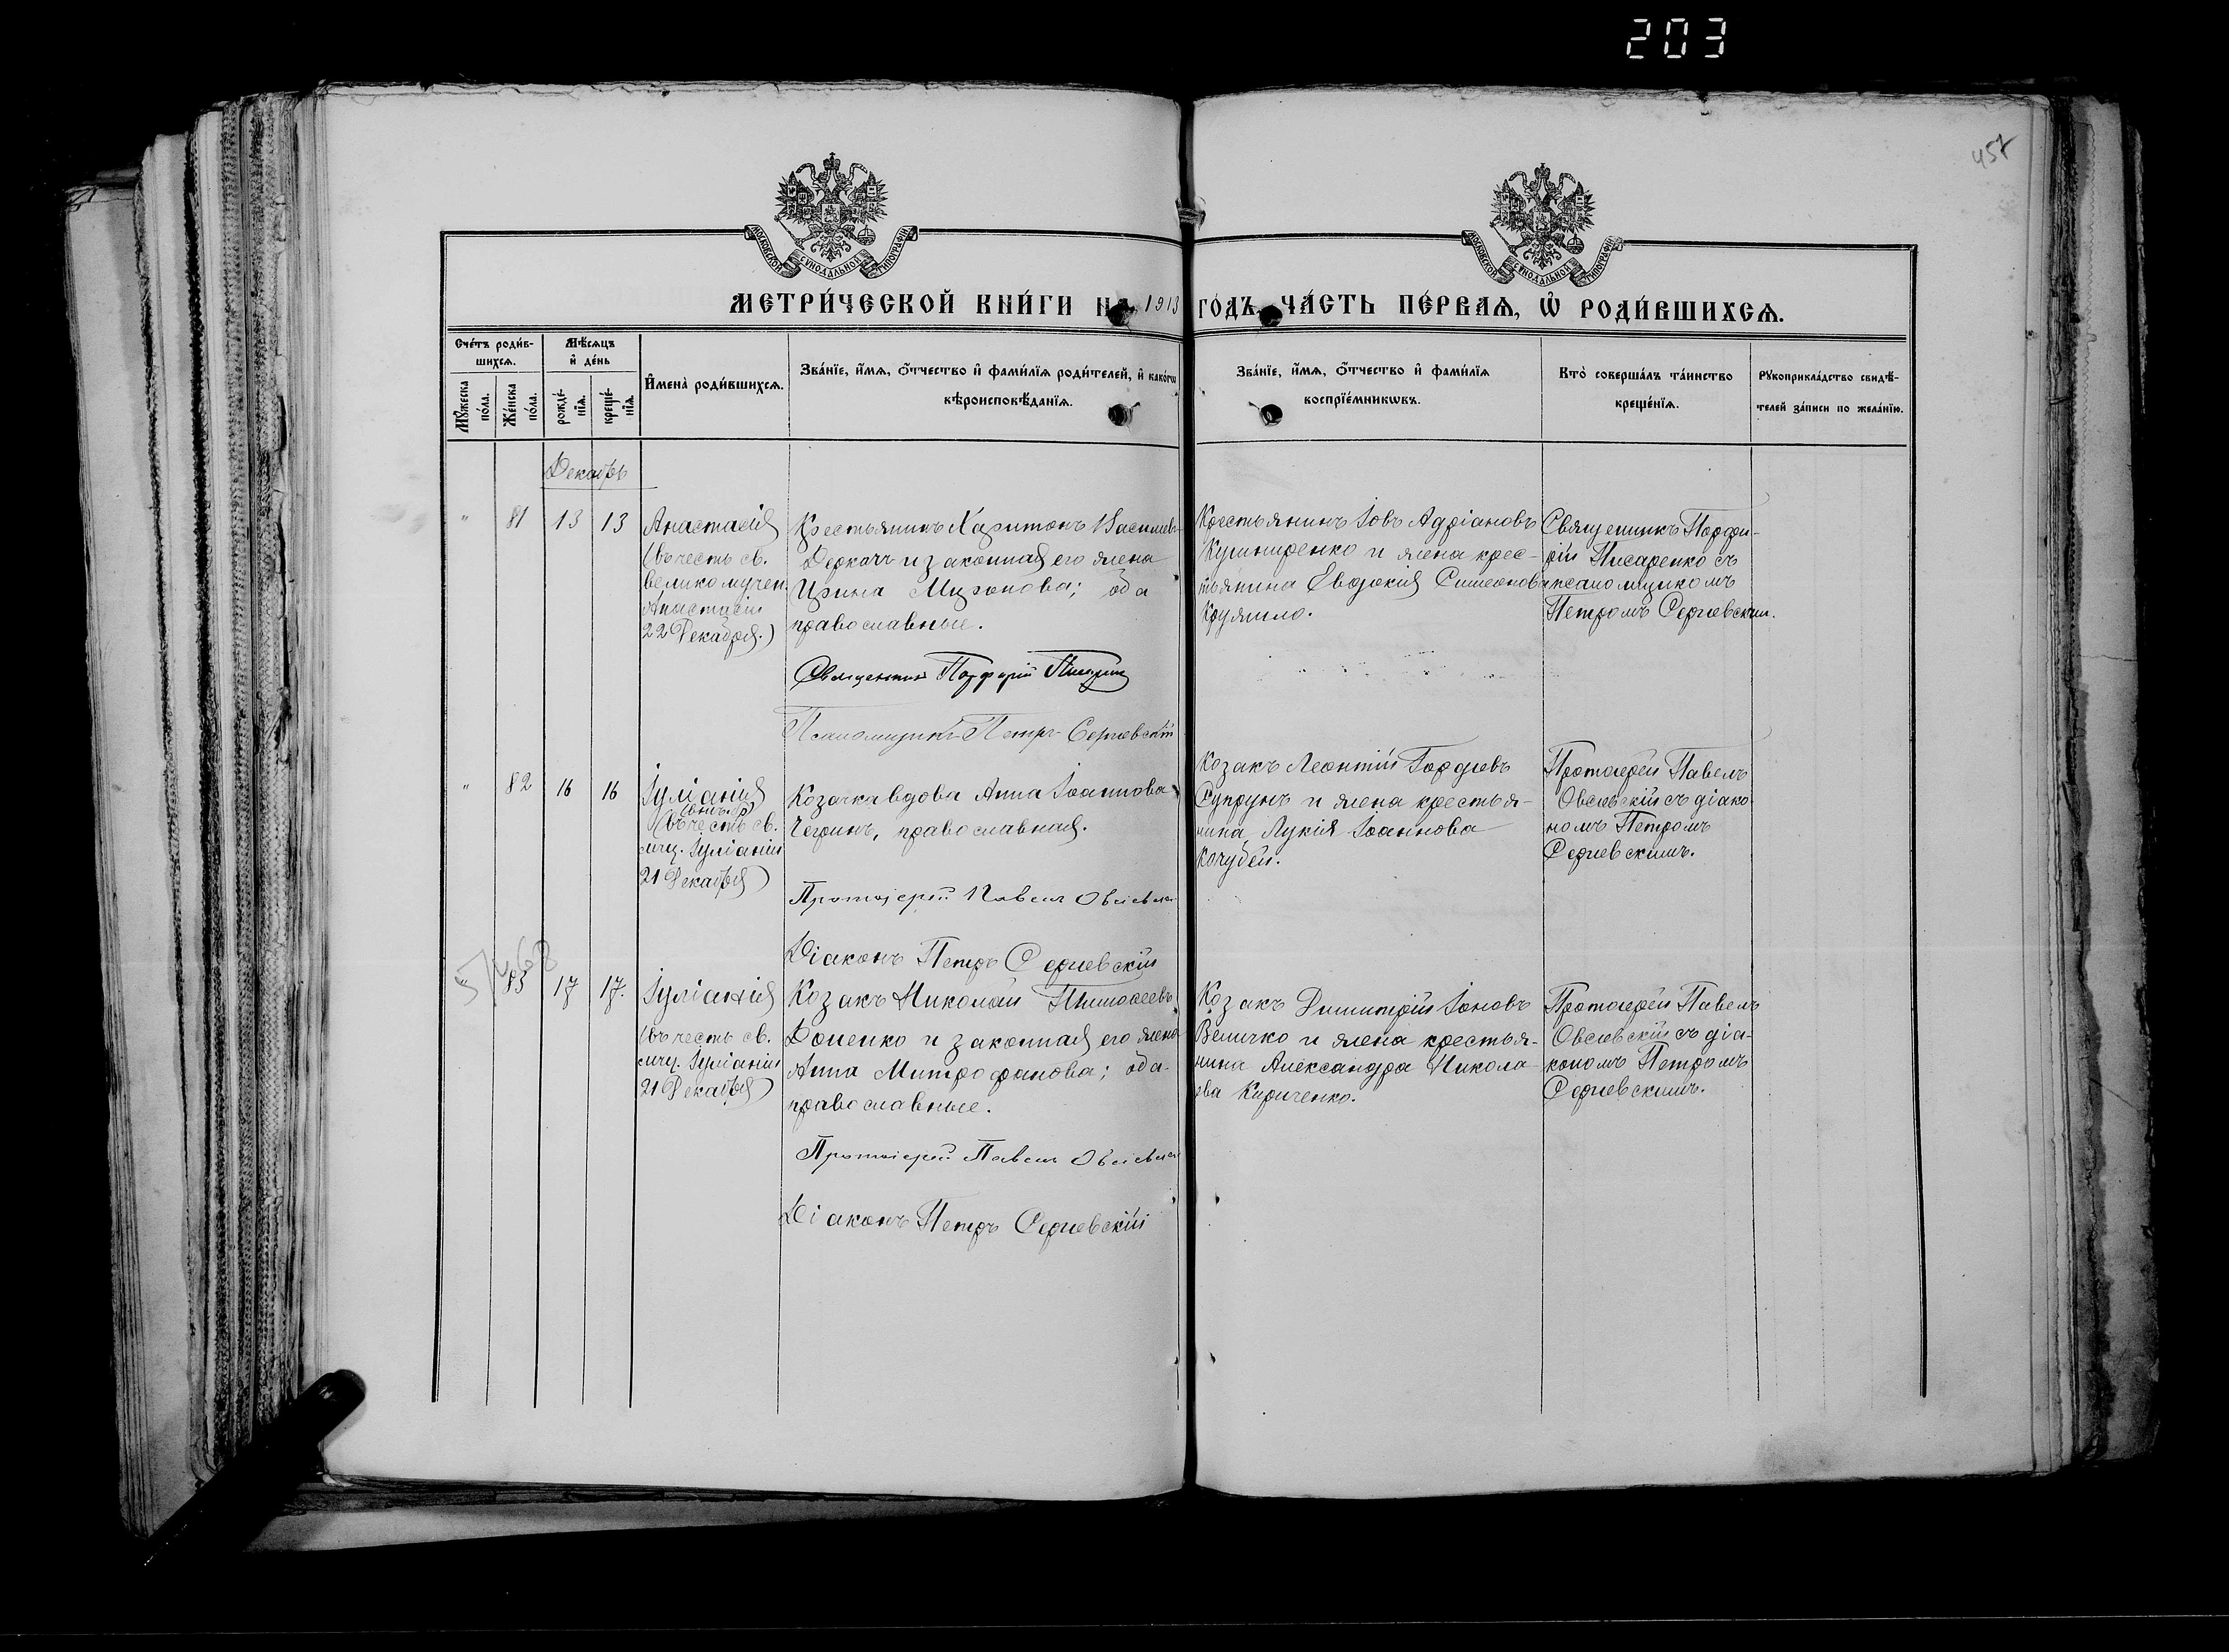 203
457
МОСКОВСКОЙ СУНОДАЛЬНОЙ ТИПОГРАФІИ
МОСКОВСКОЙ СУНОДАЛЬНОЙ ТИПОГРАФІИ
МЕТРИ́ЧЕСКОЙ КНИ́ГИ НА 1913 ГО́ДЪ, ЧА́СТЬ ПЕ́РВАѦ, Ѡ РОДИ́ВШИХСѦ.
Сче́тъ роди́в-
шихсѧ.
Мꙋжеска по́ла.
Же́нска по́ла.
Мѣ́сѧцъ
и де́нь
рожде́-
нїѧ.
креще́-
нїѧ.
Имена̀ роди́вшихсѧ.
Зва́нїе, и́мѧ, о́тчество и фами́лїѧ роди́телей, и како́гѡ
вѣроисповѣ́данїѧ.
Зва́нїе, и́мѧ, о́тчество и фами́лїѧ
воспрїе́мникѡвъ.
Кто̀ соверша́лъ та́инство
креще́нїѧ.
Рꙋкоприкла́дство свидѣ́-
телей за́писи по жела́нїю.
Декабрь
" 81 13 13
Анастасія
(въ честь св.
великомучен.
Анастасіи
22 Декабря.)
Крестьянинъ Харитонъ Васильевъ
Деркачъ и законная его жена
Ирина Миронова; оба
православные.
Священникъ Порфирій Писаренко
Псаломщикъ Петръ Сергіевскій
Крестьянинъ Іовъ Адріановъ
Кушниренко и жена крес-
тьянина Евдокія Симеонова
Кружило.
Священникъ Порфи-
рій Писаренко съ
псаломщикомъ
Петромъ Сергіевским.
" 82 16 16
Іуліанія
(въ честь св.
мчц. Іуліаніи
21 Декабря)
Козачка вдова Анна Іоаннова
Чегринъ, православная.
Протоіерей Павелъ Овсіевскій
Діаконъ Петръ Сергіевскій
Козакъ Леонтій Гордіевъ
Супрунъ и жена крестья-
нина Лукія Іоаннова
Кочубей.
Протоіерей Павелъ
Овсіевскій съ діако-
номъ Петромъ
Сергіевскимъ.
57468
" 83 17 17.
Іуліанія
(въ честь св.
мчц. Іуліаніи
21 Декабря)
Козакъ Николай Тимофеевъ
Доненко и законная его жена
Анна Митрофанова; оба
православные.
Протоіерей Павелъ Овсіевскій
Діаконъ Петръ Сергіевскій
Козакъ Димитрій Іоновъ
Величко и жена крестья-
нина Александра Никола-
ева Кириченко.
Протоіерей Павелъ
Овсіевскій съ діа-
кономъ Петромъ
Сергіевскимъ.